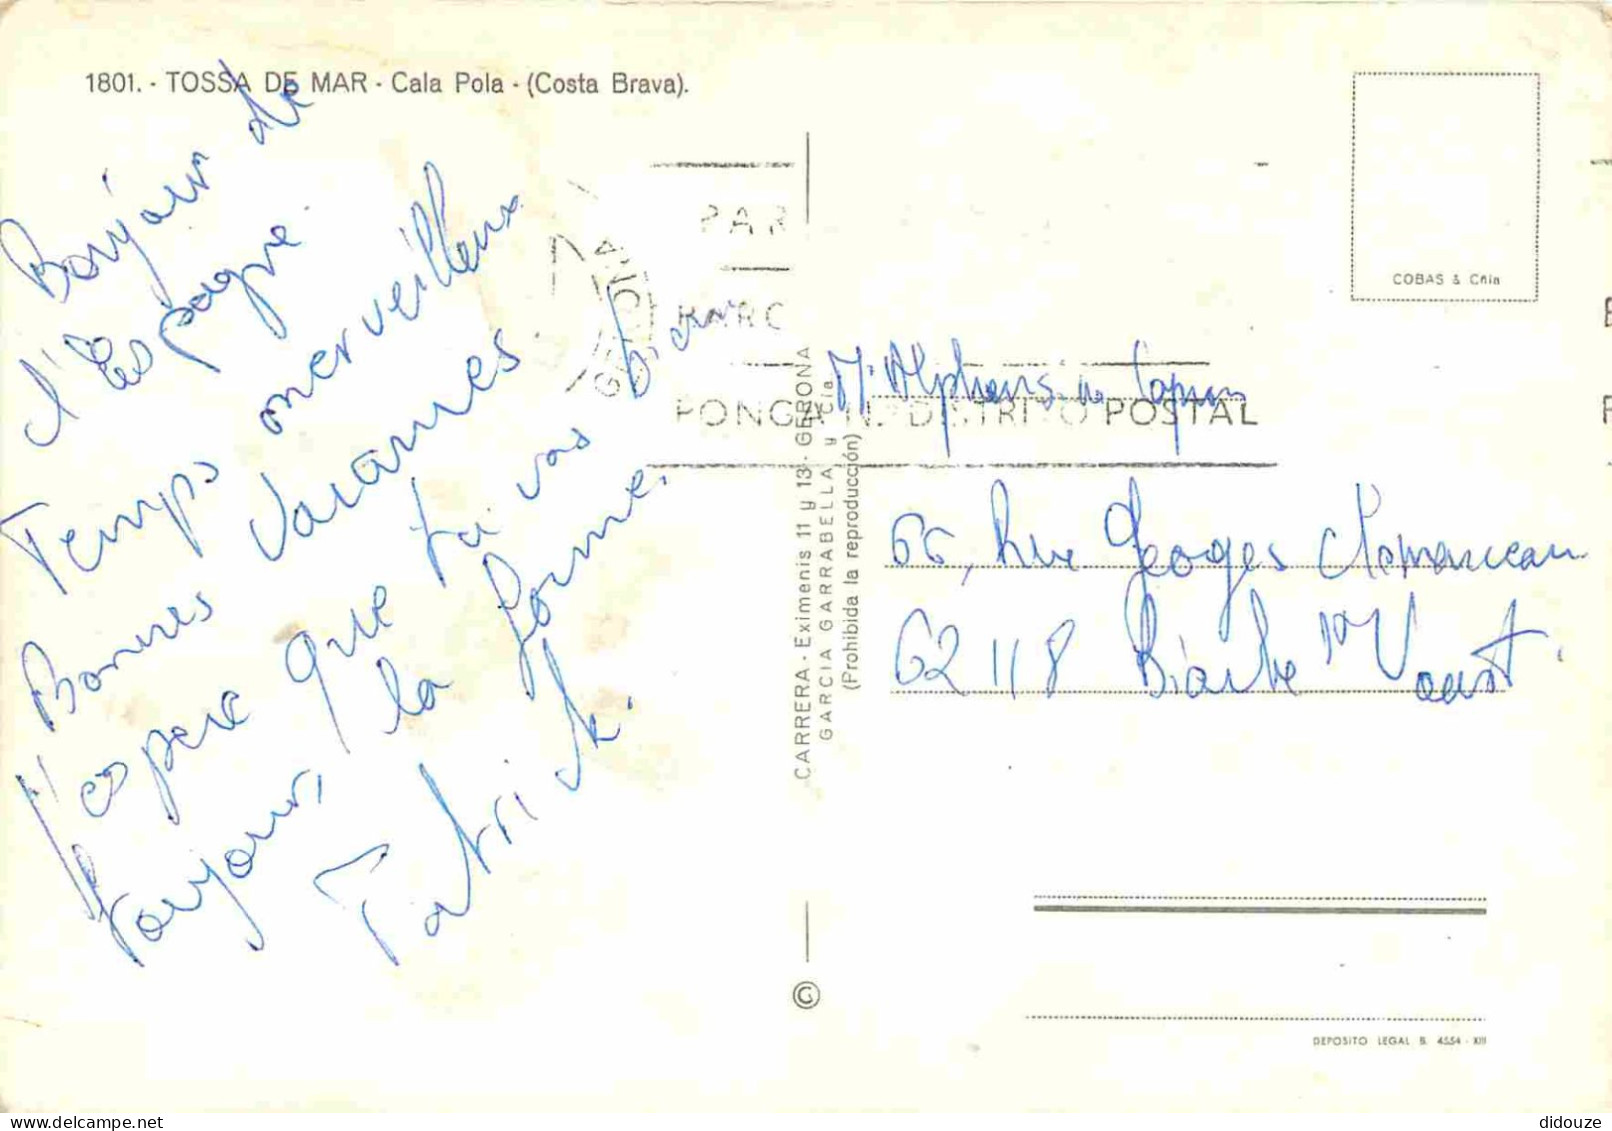 1801. - TOSSA DE MAR - Cala Pola - (Costa Brava).
Bonjour de
l'Espagne.
Temps merveilleux
Bonnes vacances.
J'espère que tu vas bien
toujours, la forme.
Patrick.
GERONA
PAR
BARC
PONGA N. DISTRITO POSTAL
COBAS & Cñia
CARRERA - Eximenis 11 y 13 - GERONA
GARCIA GARRABELLA y Cía
(Prohibida la reproducción)
©
M. Alphonse
66, Rue Georges Clemenceau
62118 Biache St Vaast.
DEPOSITO LEGAL B. 4554 - XIII
didouze